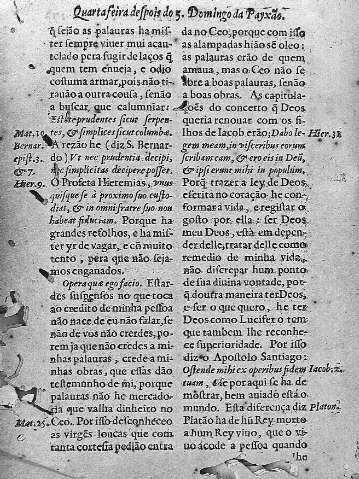 Quarta feira despois do 5. Domingo da Payxão.
q̃ sejão as palauras ha mis-
ter sempre viuer mui acau-
telado pera fugir de laços q̃
quem tem enueja, e odio
costuma armar, pois não ti-
rauão a outra cousa, senão
a buscar, que calumniar:
Estote prudentes sicut serpen-
Mat. 10.
tes, & simplices sicut columbæ.
Bernar.
A rezão he (diz S. Bernar-
epist. 3.
do) Vt nec prudentia decipi,
& 7.
nec simplicitas decipere posset.
Hier. 9.
O Profeta Hieremias, Vnus
quisque se à proximo suo custo-
diat, & in omni fratre suo non
habeat fiduciam. Porque ha
grandes refolhos, e ha mis-
ter yr de vagar, e cõ muito
tento, pera que não seja-
mos enganados.
Opera quæ ego facio. Estar-
des suspensos no que toca
ao credito de minha pessoa
não nace de eu não falar, se
não de vos não crerdes, po-
rem ja que não credes a mi-
nhas palauras, crede a mi-
nhas obras, que essas dão
testemonho de mi, porque
palauras não he mercado-
ria que valha dinheiro no
Mat. 25.
Ceo. Por isso desconheceo
as virgẽs loucas que com
tanta cortesia pedião entra
da no Ceo, porque com isso
as alampadas hião sẽ oleo:
as palauras erão de quem
amaua, mas o Ceo não se
abre a boas palauras, senão
a boas obras. As capitula-
ções do concerto q̃ Deos
queria renouar com os fi-
lhos de Iacob erão; Dabo le-
Hier. 31.
gem meam, in visceribus eorum
scribam eam, & ero eis in Deũ,
& ipsi erunt mihi in populum,
Porq̃ trazer a ley de Deos
escrita no coração he con-
formar a vida, e registar o
gosto por ella: ser Deos
meu Deos, està em depen-
der delle, tratar delle como
remedio de minha vida,
não discrepar hum ponto
de sua diuina vontade, por-
q̃ doutra maneira ter Deos,
e ser o que quero, he ter
Deos como Lucifer o tem
que tambem lhe reconhe-
ce superioridade. Por isso
diz o Apostolo Santiago:
Ostende mihi ex operibus fidem
Iacob. 2.
tuam, Que por aqui se ha de
mostrar, bem auiado està o
mundo. Esta diferença diz
Platon.
Platão ha de hũ Rey morto
a hum Rey viuo, que o vi-
uo acode a pessoa quando
he